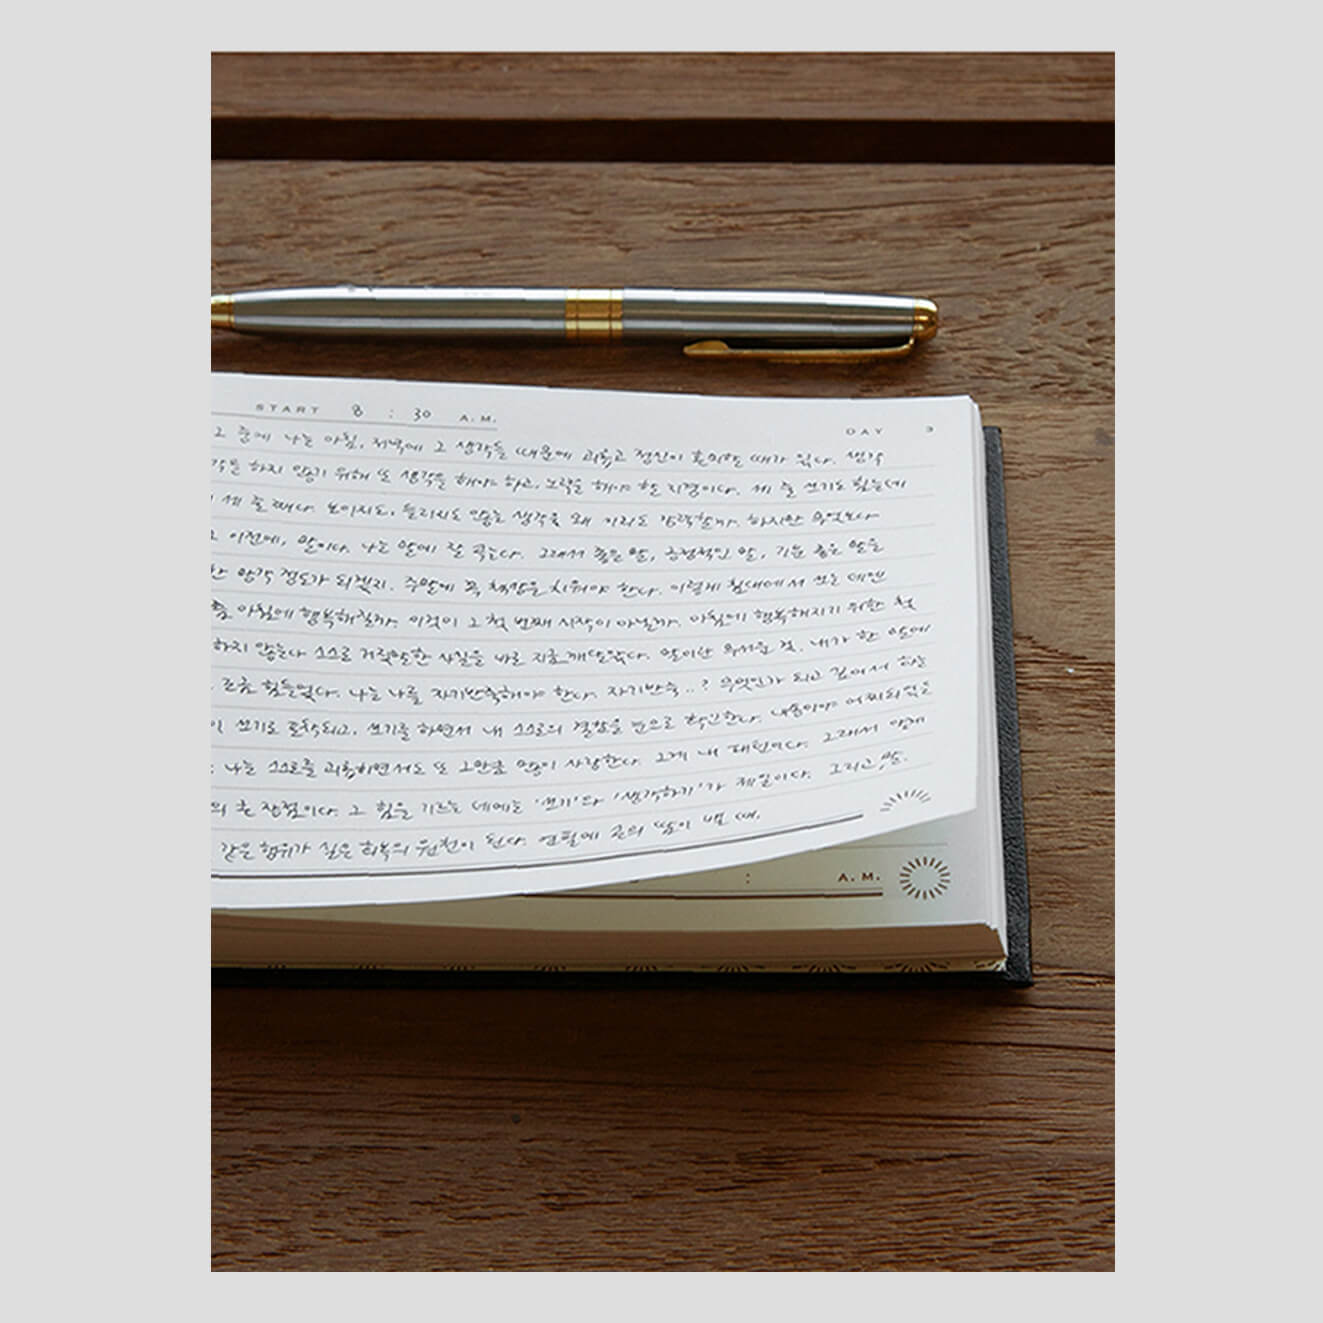 START 8 : 30 A.M.
DAY 3
그 중에 나는 아침, 저녁에 그 생각들 때문에 괴롭고 정신이 혼미할 때가 있다. 생각
하지 않기 위해 또 생각을 해야 하고, 노력을 해야 할 지경이다. 세 줄 쓰기도 힘든데
세 줄 째다. 보이지도, 들리지도 않는 생각을 왜 이리도 할까. 하지만 무엇보다
이전에, 말이다. 나는 말에 잘 속는다. 그래서 좋은 말, 긍정적인 말, 기분 좋은 말을
정도가 되겠지. 주말에 꼭 책장을 치워야 한다. 이렇게 침대에서 쓰는 데엔
좀 아침에 행복해질까. 이것이 그 첫 번째 시작이 아닐까. 아침에 행복해지기 위한 첫
하지 않는다 스스로 거짓말한 사실을 바로 지금 깨달았다. 말이란 무서운 것. 내가 한 말에
조금 힘들었다. 나는 나를 자기반축해야 한다. 자기반축..? 무엇인가 되고 깊어서 하는
쓰기로 포착되고, 쓰기를 하면서 내 스스로의 결함을 눈으로 확인한다. 내용이야 어찌되었든
나는 스스로를 괴롭히면서도 또 그만큼 많이 사랑한다. 그게 내 패턴이다. 그래서
의 큰 장점이다. 그 힘을 기르는 데에는 '쓰기'와 '생각하기'가 제일이다. 그리고, 말.
같은 행위가 실은 회복의 원천이 된다. 연필에 손의 땀이 밸 때,
: A.M.